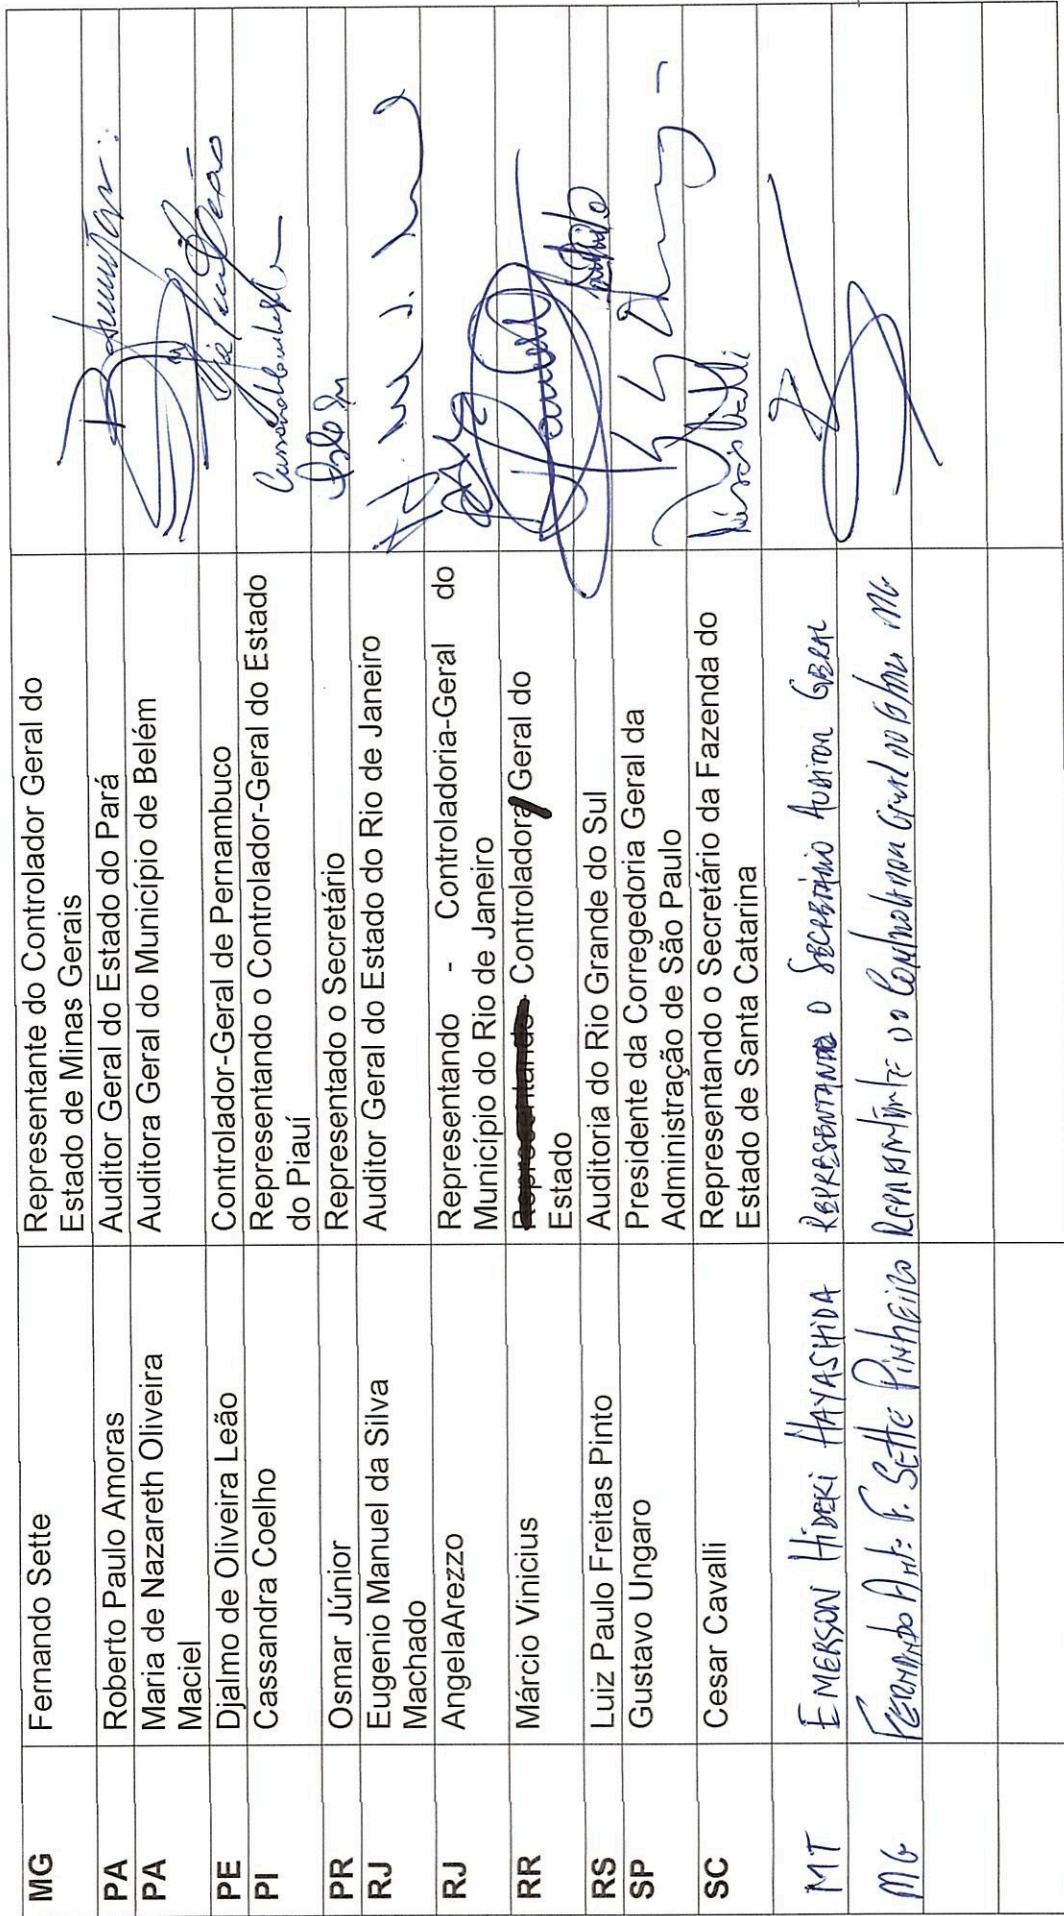 MG Fernando Sette Representante do Controlador Geral do
Estado de Minas Gerais
PA Roberto Paulo Amoras Auditor Geral do Estado do Pará
PA Maria de Nazareth Oliveira Auditora Geral do Município de Belém
Maciel
PE Djalmo de Oliveira Leão Controlador-Geral de Pernambuco
PI Cassandra Coelho Representando o Controlador-Geral do Estado
do Piauí
PR Osmar Júnior Representado o Secretário
RJ Eugenio Manuel da Silva Auditor Geral do Estado do Rio de Janeiro
Machado
RJ AngelaArezzo Representando - Controladoria-Geral do
Município do Rio de Janeiro
RR Márcio Vinicius Representando - Controlador Geral do
Estado
RS Luiz Paulo Freitas Pinto Auditoria do Rio Grande do Sul
SP Gustavo Ungaro Presidente da Corregedoria Geral da
Administração de São Paulo
SC Cesar Cavalli Representando o Secretário da Fazenda do
Estado de Santa Catarina
MT EMERSON HIDEKI HAYASHIDA REPRESENTANDO O SECRETÁRIO AUDITOR GERAL
MG FERNANDO F. SETTE PINHEIRO MG